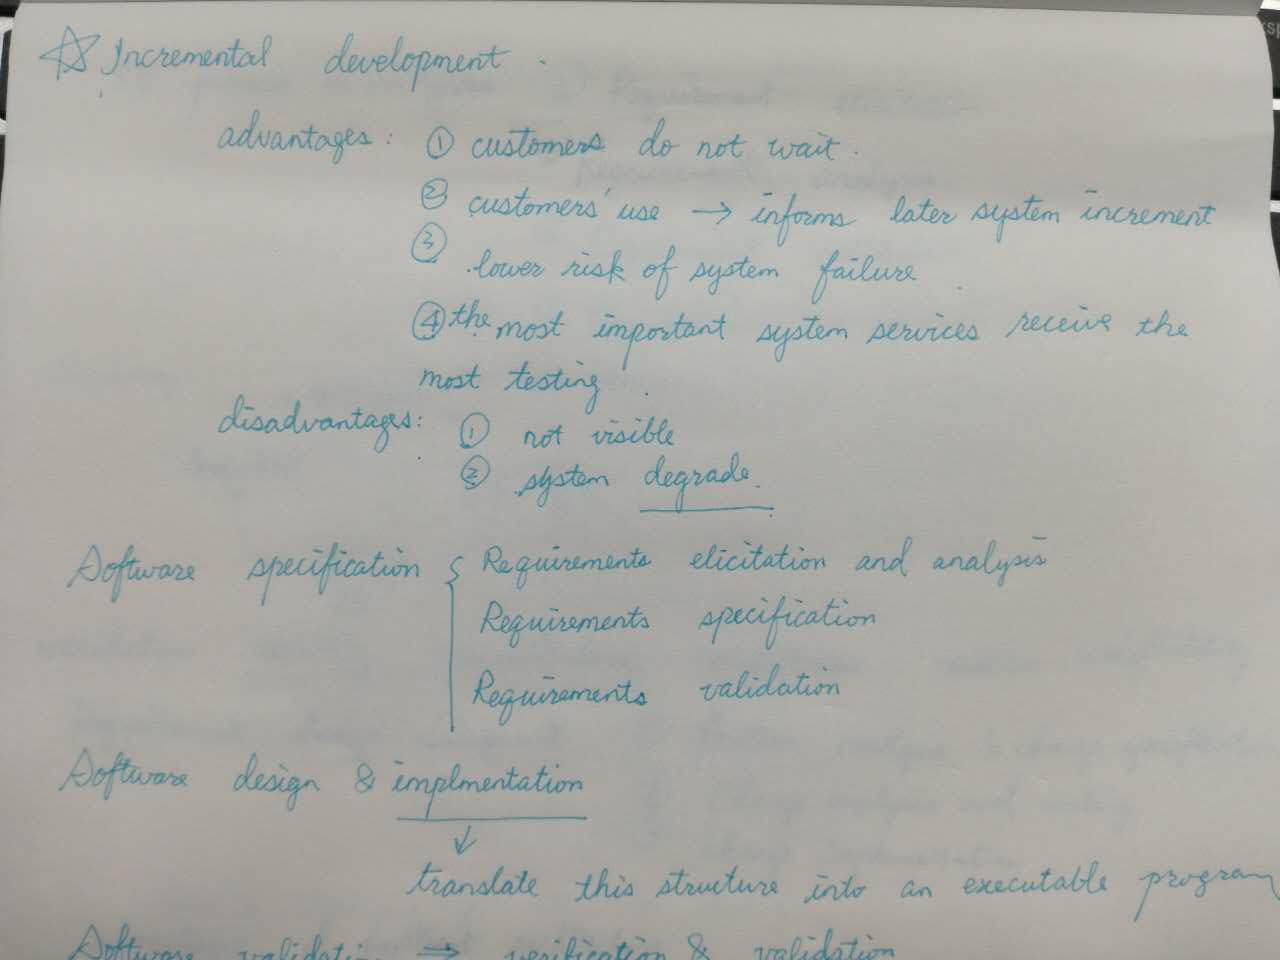 ☆ Incremental development.
advantages: ① customers do not wait.
② customers' use → informs later system increment
③ lower risk of system failure
④ the most important system services receive the
most testing.
disadvantages: ① not visible
② system degrade.
Software specification { Requirements elicitation and analysis
Requirements specification
Requirements validation
Software design & implmentation
↓
translate this structure into an executable program
Software validation ⇒ verification & validation